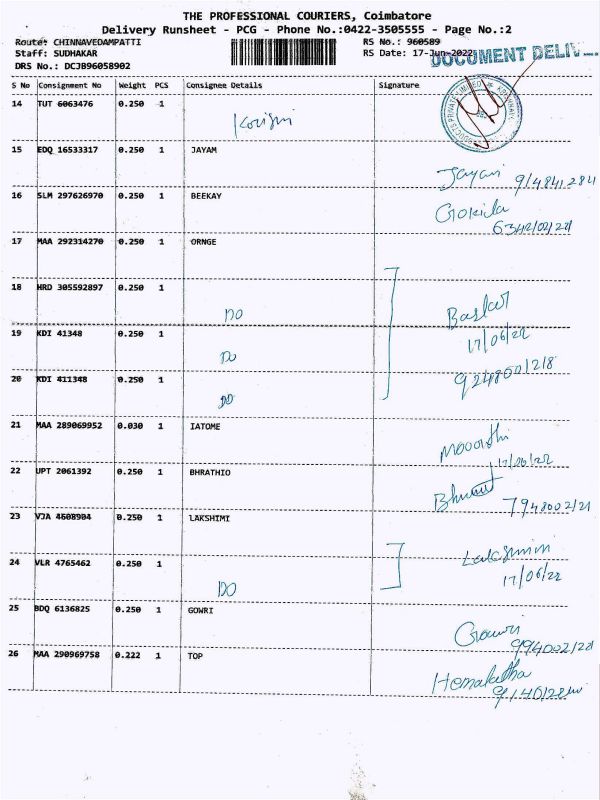 THE PROFESSIONAL COURIERS, Coimbatore
Delivery Runsheet - PCG - Phone No.:0422-3505555 - Page No.:2
Route: CHINNAVEDAMPATTI RS No.: 960589
Staff: SUDHAKAR RS Date: 17-Jun-2022
DOCUMENT DELIV
DRS No.: DCJB96058902
S No Consignment No Weight PCS Consignee Details Signature
14 TUT 6063476 0.250 1
15 EDQ 16533317 0.250 1 JAYAM
16 SLM 297626970 0.250 1 BEEKAY
Gokila
17 MAA 292314270 0.250 1 ORNGE
18 HRD 305592897 0.250 1
DO Baskar
17/06/22
19 KDI 41348 0.250 1
DO
20 KDI 411348 0.250 1
DO
21 MAA 289069952 0.030 1 IATOME
Mooorthi
17/06/22
22 UPT 2061392 0.250 1 BHRATHIO
23 VJA 4608904 0.250 1 LAKSHIMI
24 VLR 4765462 0.250 1
DO 17/06/22
25 BDQ 6136825 0.250 1 GOWRI
Gowri
26 MAA 290969758 0.222 1 TOP
Hemalatha